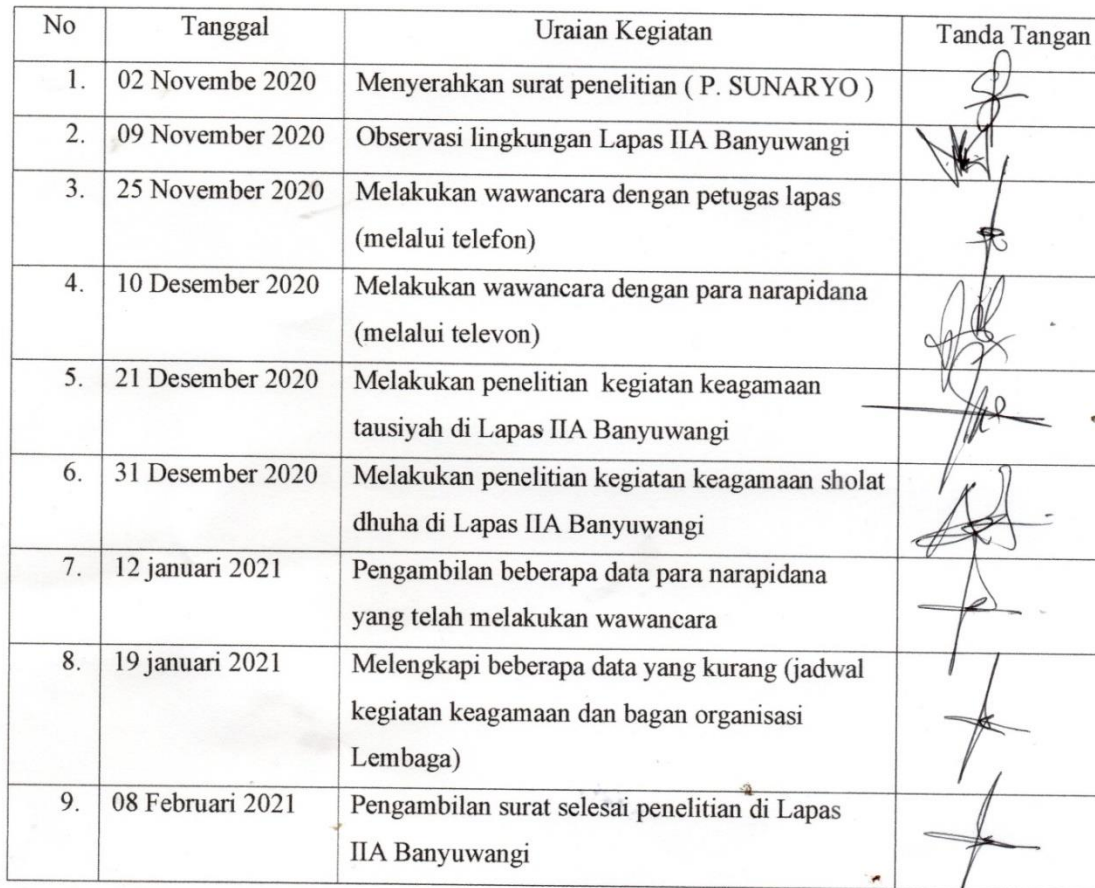 No Tanggal Uraian Kegiatan Tanda Tangan
1. 02 Novembe 2020 Menyerahkan surat penelitian ( P. SUNARYO )
2. 09 November 2020 Observasi lingkungan Lapas IIA Banyuwangi
3. 25 November 2020 Melakukan wawancara dengan petugas lapas
(melalui telefon)
4. 10 Desember 2020 Melakukan wawancara dengan para narapidana
(melalui televon)
5. 21 Desember 2020 Melakukan penelitian kegiatan keagamaan
tausiyah di Lapas IIA Banyuwangi
6. 31 Desember 2020 Melakukan penelitian kegiatan keagamaan sholat
dhuha di Lapas IIA Banyuwangi
7. 12 januari 2021 Pengambilan beberapa data para narapidana
yang telah melakukan wawancara
8. 19 januari 2021 Melengkapi beberapa data yang kurang (jadwal
kegiatan keagamaan dan bagan organisasi
Lembaga)
9. 08 Februari 2021 Pengambilan surat selesai penelitian di Lapas
IIA Banyuwangi